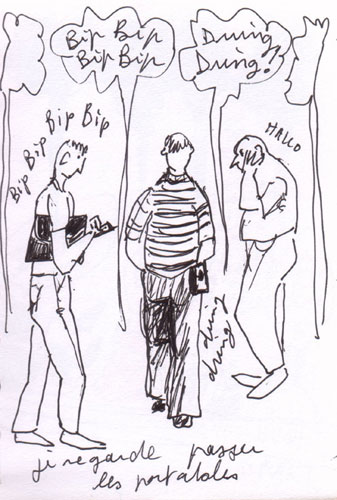 Bip Bip
Bip Bip
Dring
Dring!
Bip Bip Bip Bip
HALLO
dring
dring
je regarde passer
les portables